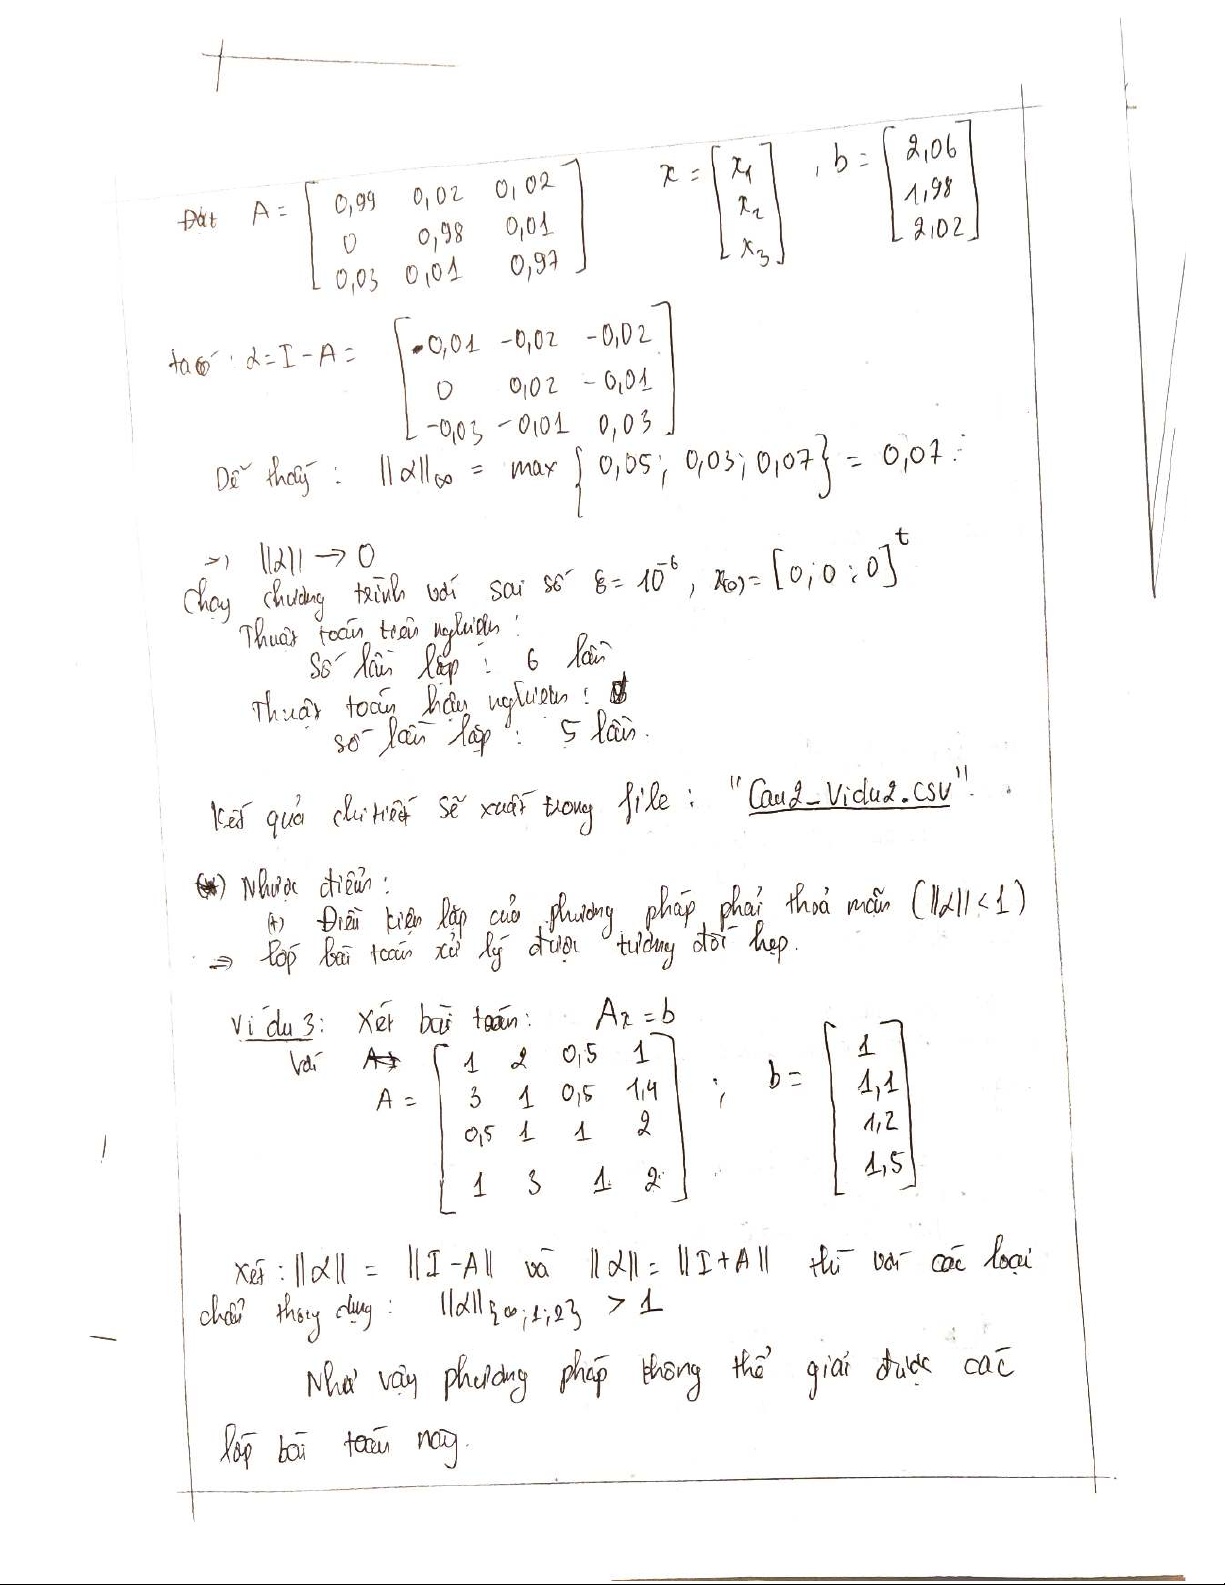 Đặt A = [ 0,99 0,02 0,02 ; 0 0,98 0,01 ; 0,03 0,01 0,97 ] x = [ x1 ; x2 ; x3 ] , b = [ 2,06 ; 1,98 ; 2,02 ]
ta có : α = I - A = [ -0,01 -0,02 -0,02 ; 0 0,02 -0,01 ; -0,03 -0,01 0,03 ]
Dễ thấy : ||α||∞ = max { 0,05 ; 0,03 ; 0,07 } = 0,07.
=> ||α|| → 0
Chạy chương trình với sai số ε = 10^-6 , x(0) = [0 ; 0 ; 0]^t
Thuật toán tiên nghiệm :
Số lần lặp : 6 lần
Thuật toán hậu nghiệm :
số lần lặp : 5 lần.
Kết quả chi tiết sẽ xuất trong file : "Cau2_Vidu2.csv".
(*) Nhược điểm :
(+) Điều kiện lặp của phương pháp phải thoả mãn (||α|| < 1)
=> lớp bài toán xử lý được tương đối hẹp.
Ví dụ 3: Xét bài toán: Ax = b
Với
A = [ 1 2 0,5 1 ; 3 1 0,5 1,4 ; 0,5 1 1 2 ; 1 3 1 2 ] ; b = [ 1 ; 1,1 ; 1,2 ; 1,5 ]
Xét : ||α|| = ||I - A|| và ||α|| = ||I + A|| thì với các loại
chuẩn thông dụng : ||α||{∞;1;2} > 1
Như vậy phương pháp không thể giải được các
lớp bài toán này.